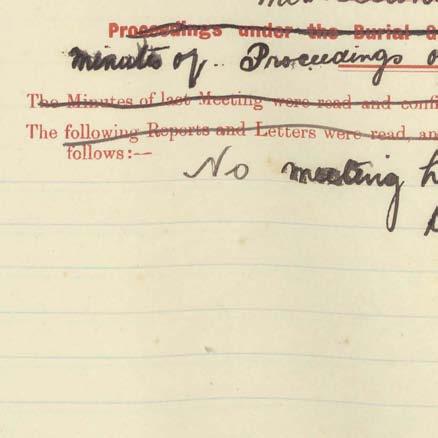 Proceedings under the Burial
minutes of Proceedings
The Minutes of last Meeting were read and confi
The following Reports and Letters were read, an
follows:—
No meeting h